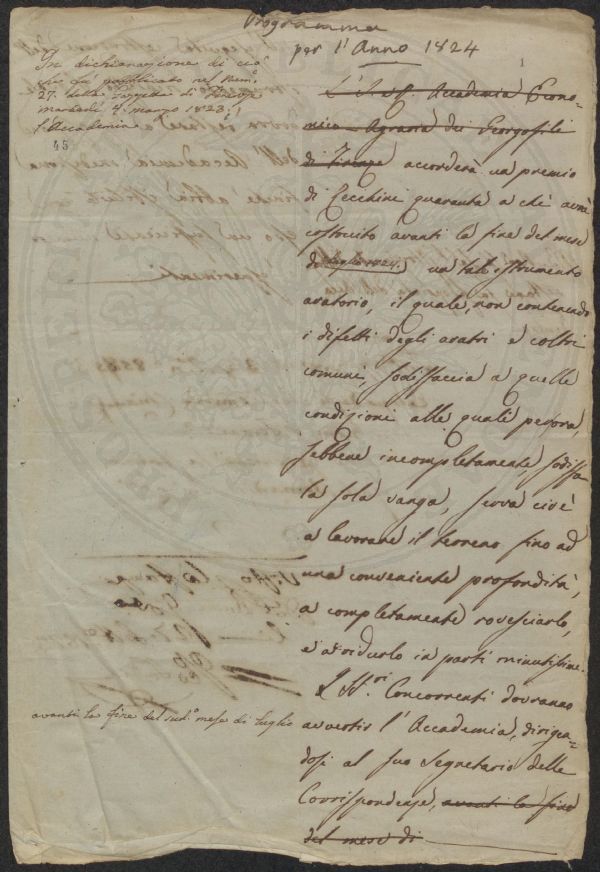 Programma
per l'Anno 1824
1
In dichiarazione di ciò
che fu pubblicato nel Num.º
27. della Gazzetta di Firenze
martedì 4. marzo 1823.
l'Accademia
45
L'I. e R. Accademia Econo-
mico-Agraria dei Georgofili
di Firenze accorderà un premio
di Zecchini quaranta a chi avrà
costruito avanti la fine del mese
di luglio 1824. un tale istrumento
aratorio, il quale, non contenendo
i difetti degli aratri e coltri
comuni, sodisfaccia a quelle
condizioni alle quali perora,
sebbene incompletamente, sodisfa
la sola vanga, serva cioè
a lavorare il terreno fino ad
una conveniente profondità,
a completamente rovesciarlo,
e a ridurlo in parti minutissime.
I SS.ri Concorrenti dovranno
avvertir l'Accademia, dirigen-
dosi al suo Segretario delle
Corrispondenze, avanti la fine
del mese di
avanti la fine del sud.º mese di luglio